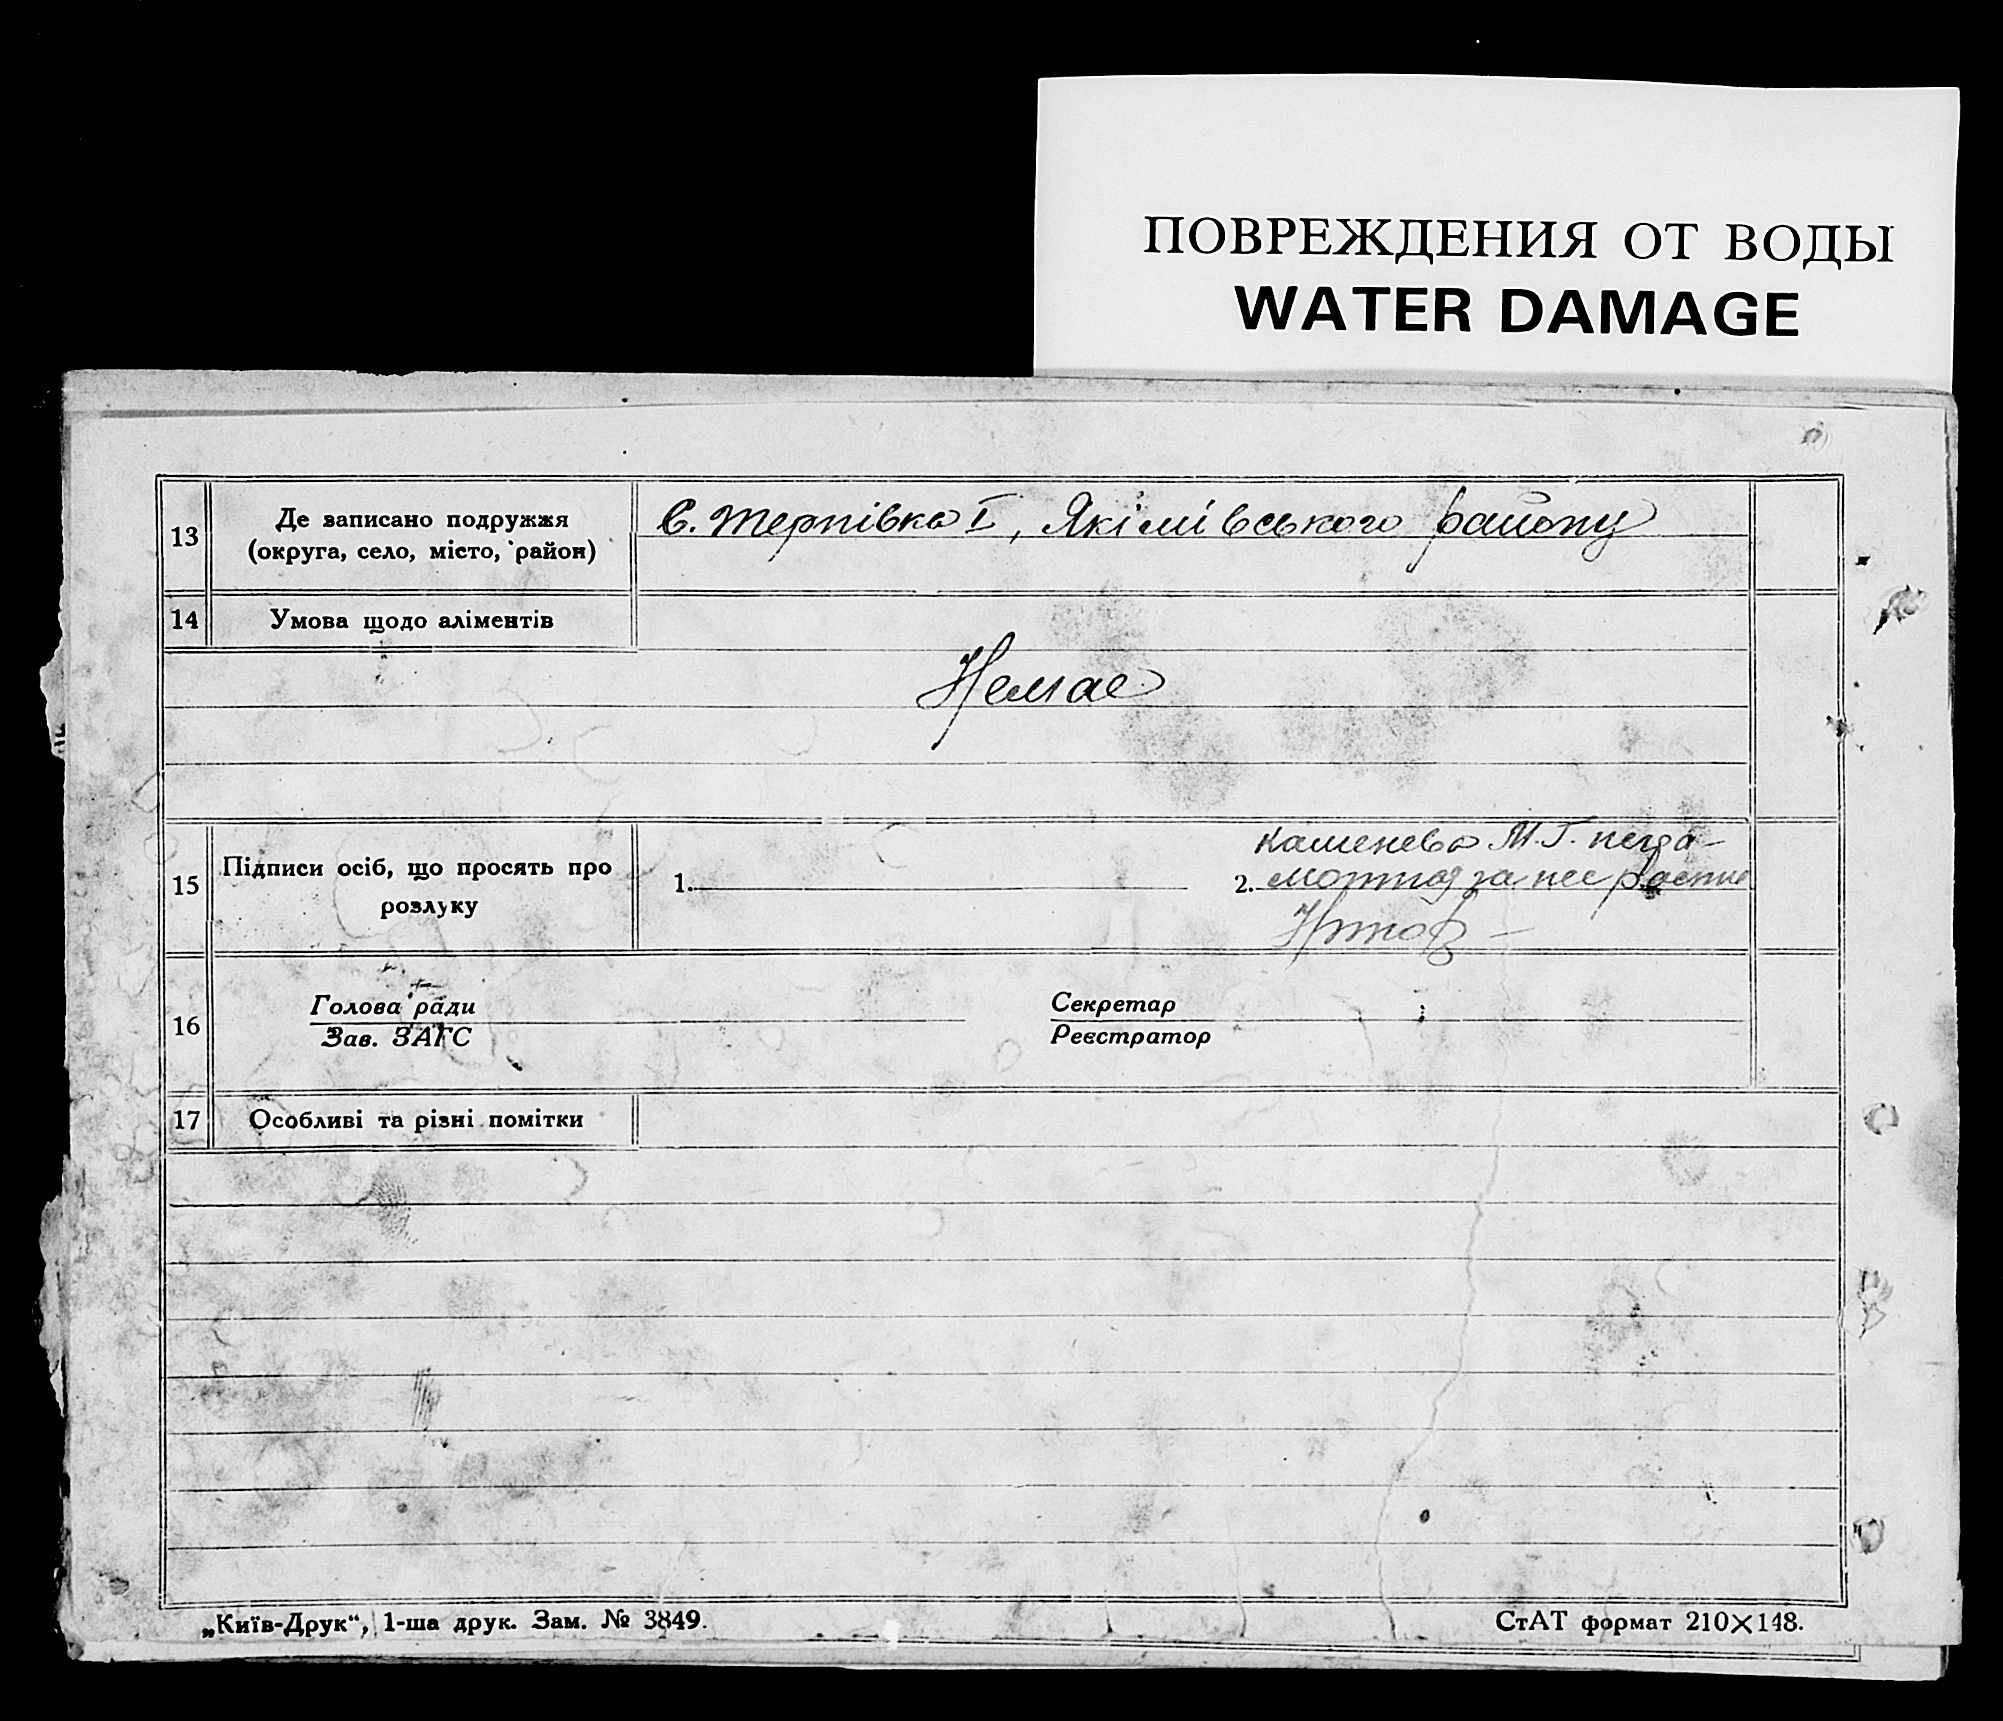 ПОВРЕЖДЕНИЯ ОТ ВОДЫ
WATER DAMAGE
13
Де записано подружжя
(округа, село, місто, район)
С. Терпівка I, Якімівського району
14
Умова щодо аліментів
Немає
15
Підписи осіб, що просять про
розлуку
1.
Каменева М.Г. негра-
2. мотная за нее
16
Голова ради
Зав. ЗАГС
Секретар
Реєстратор
17
Особливі та різні помітки
„Київ-Друк“, 1-ша друк. Зам. № 3849.
СтАТ формат 210×148.